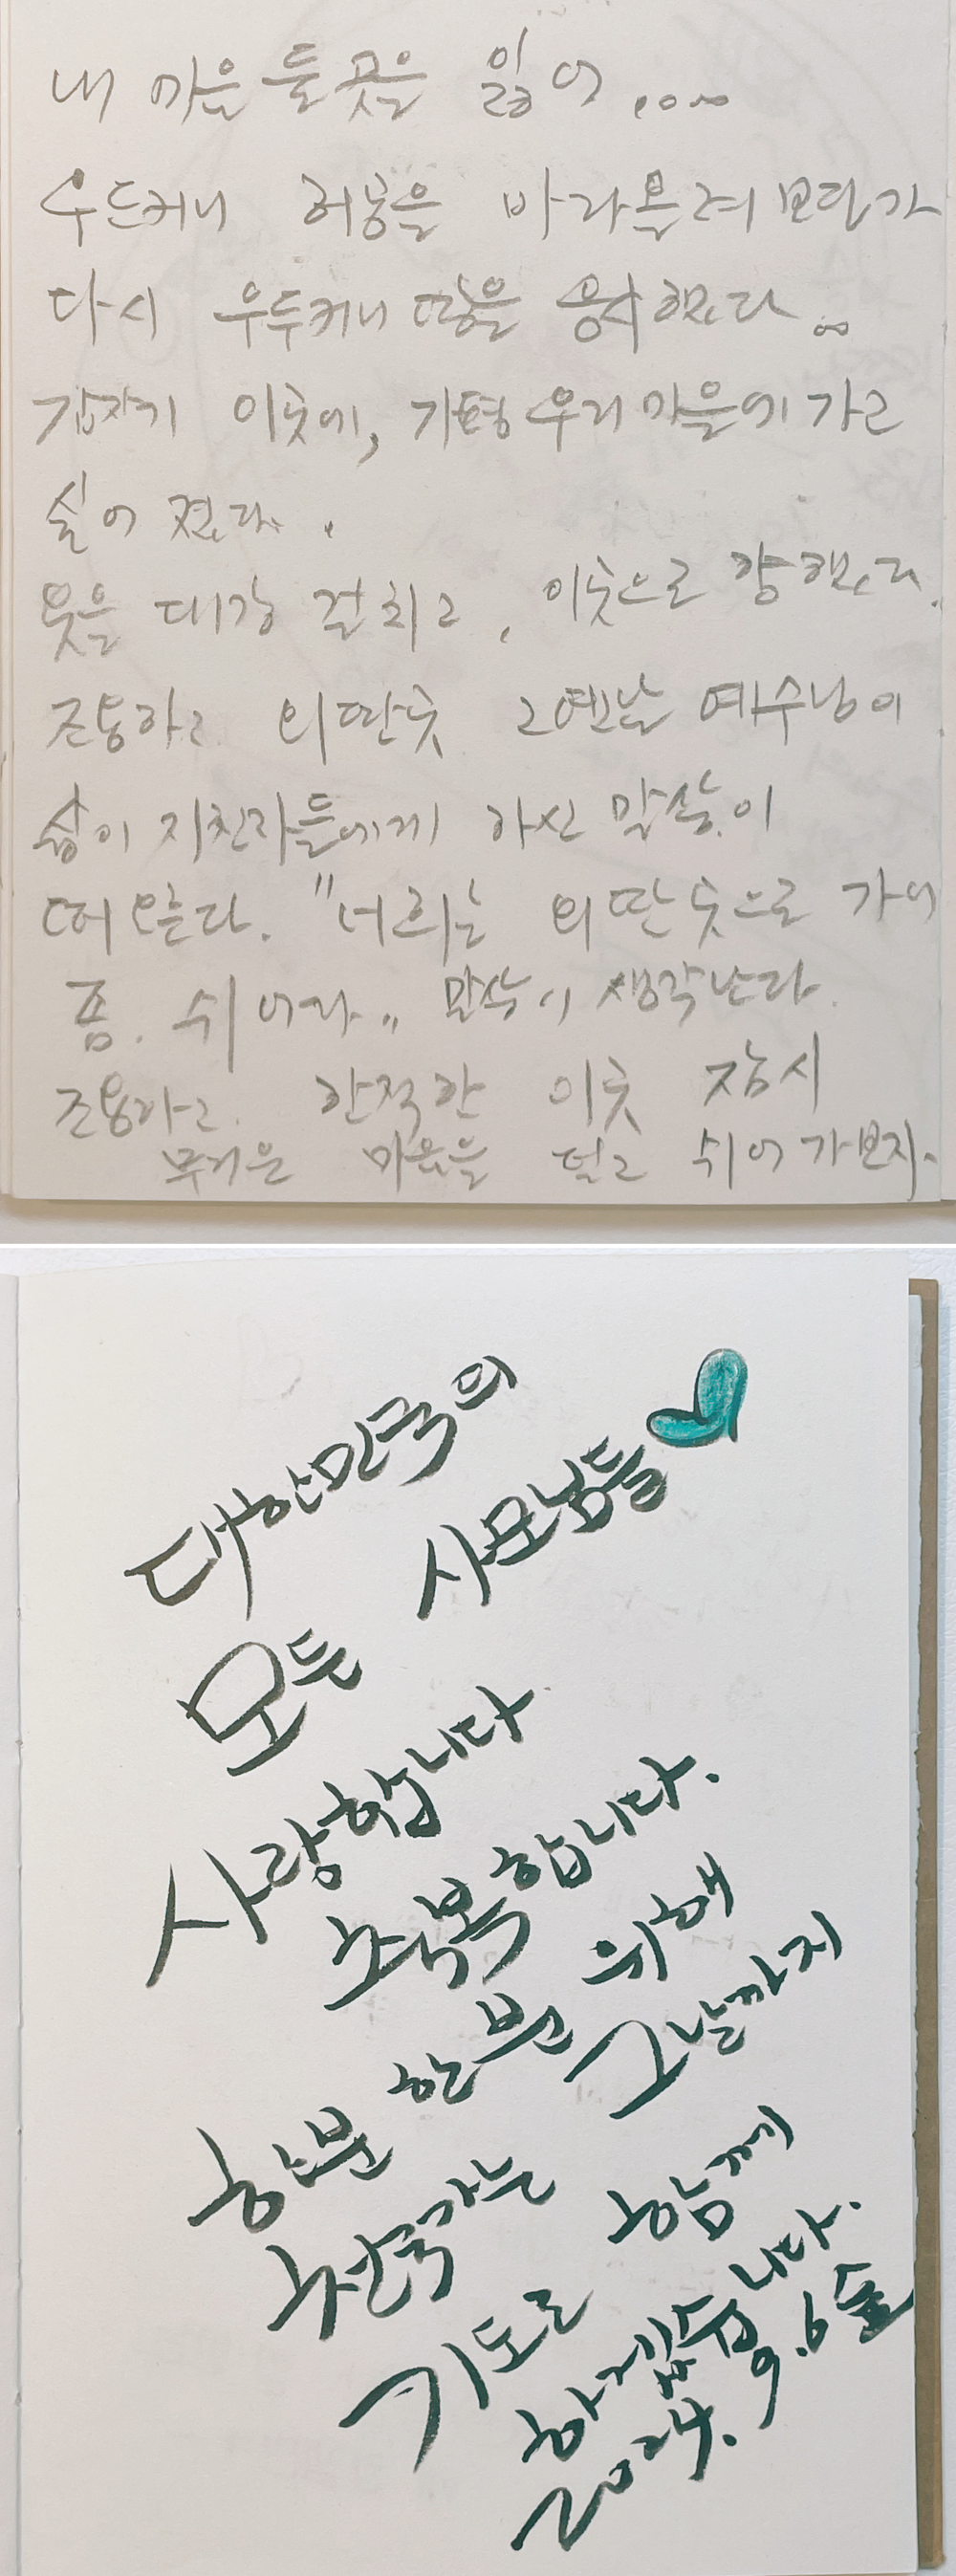 내 마음 둘곳을 잃어....
우둔커니 허공을 바라 올려 보다가
다시 우두커니 땅을 응시했다..
갑자기 이곳에, 가평우리마을에 가고
싶어 졌다.
옷을 대강 걸치고, 이곳으로 향했다.
조용하고 외딴곳 그옛날 예수님이
삶이 지친자들에게 하신 말씀이
떠 오른다. "너희는 외딴곳으로 가서
좀. 쉬어라" 말씀이 생각난다.
조용하고 한적한 이곳 잠시
무거운 마음을 덜고 쉬어 가보자.
대한민국의
모든 사모님들
사랑합니다
축복합니다.
한분 한분 위해
천국가는 그날까지
기도로 함께
하겠습니다.
2024. 9. 6 金